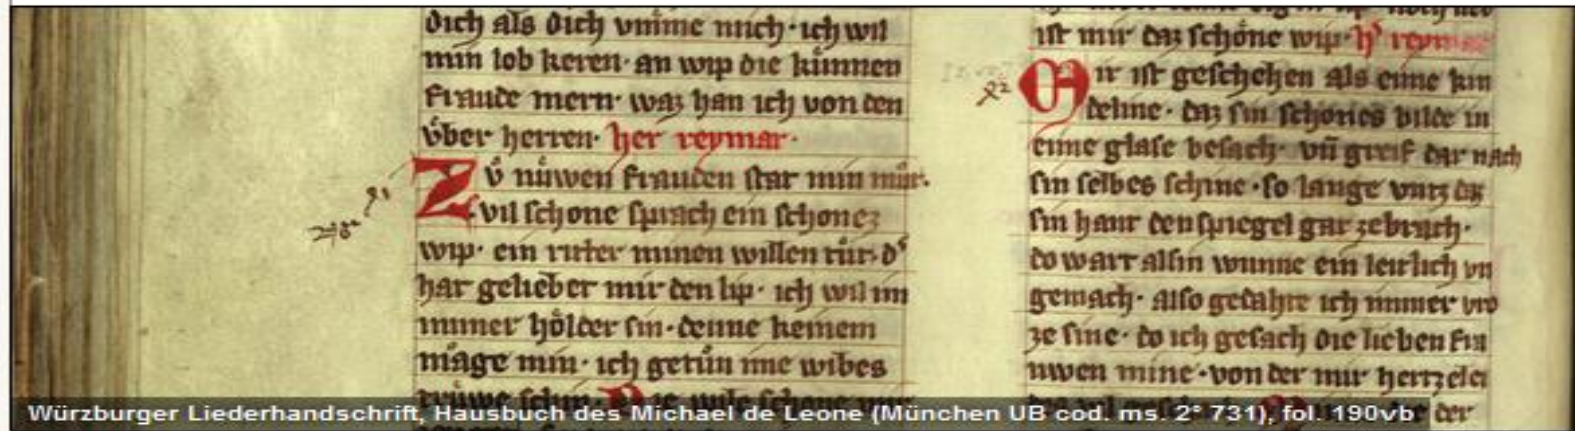 dich als dich vnïme mich · ich wil
min lob keren · an wip die kůnnen
fraude mern · waz han ich von den
v̊ber herren · her reymar ·
Zů nůwen frauden stat min můt ·
vil schone sprach ein schonez
wip · ein ritter minen willen tůt · d'
hat gelieber mir den lip · ich wil im
immer hölder sin · denne keinem
mäge min · ich getůn ime wibes
trůwe schin ·
ist mir daz schöne wip · h' reymar
Mir ist geschehen als eime kin
deline · daz sin schönes bilde in
eime glase besach · vn̄ greif dar nach
sin selbes schine · so lange vntz daz
sin hant den spiegel gar zebrach ·
do wart alsin wunne ein leitlich vn
gemach · also gedahte ich immer vro
ze sine · do ich gesach die lieben frau
nwen mine · von der mir hertzelei
der
Würzburger Liederhandschrift, Hausbuch des Michael de Leone (München UB cod. ms. 2° 731), fol. 190vb